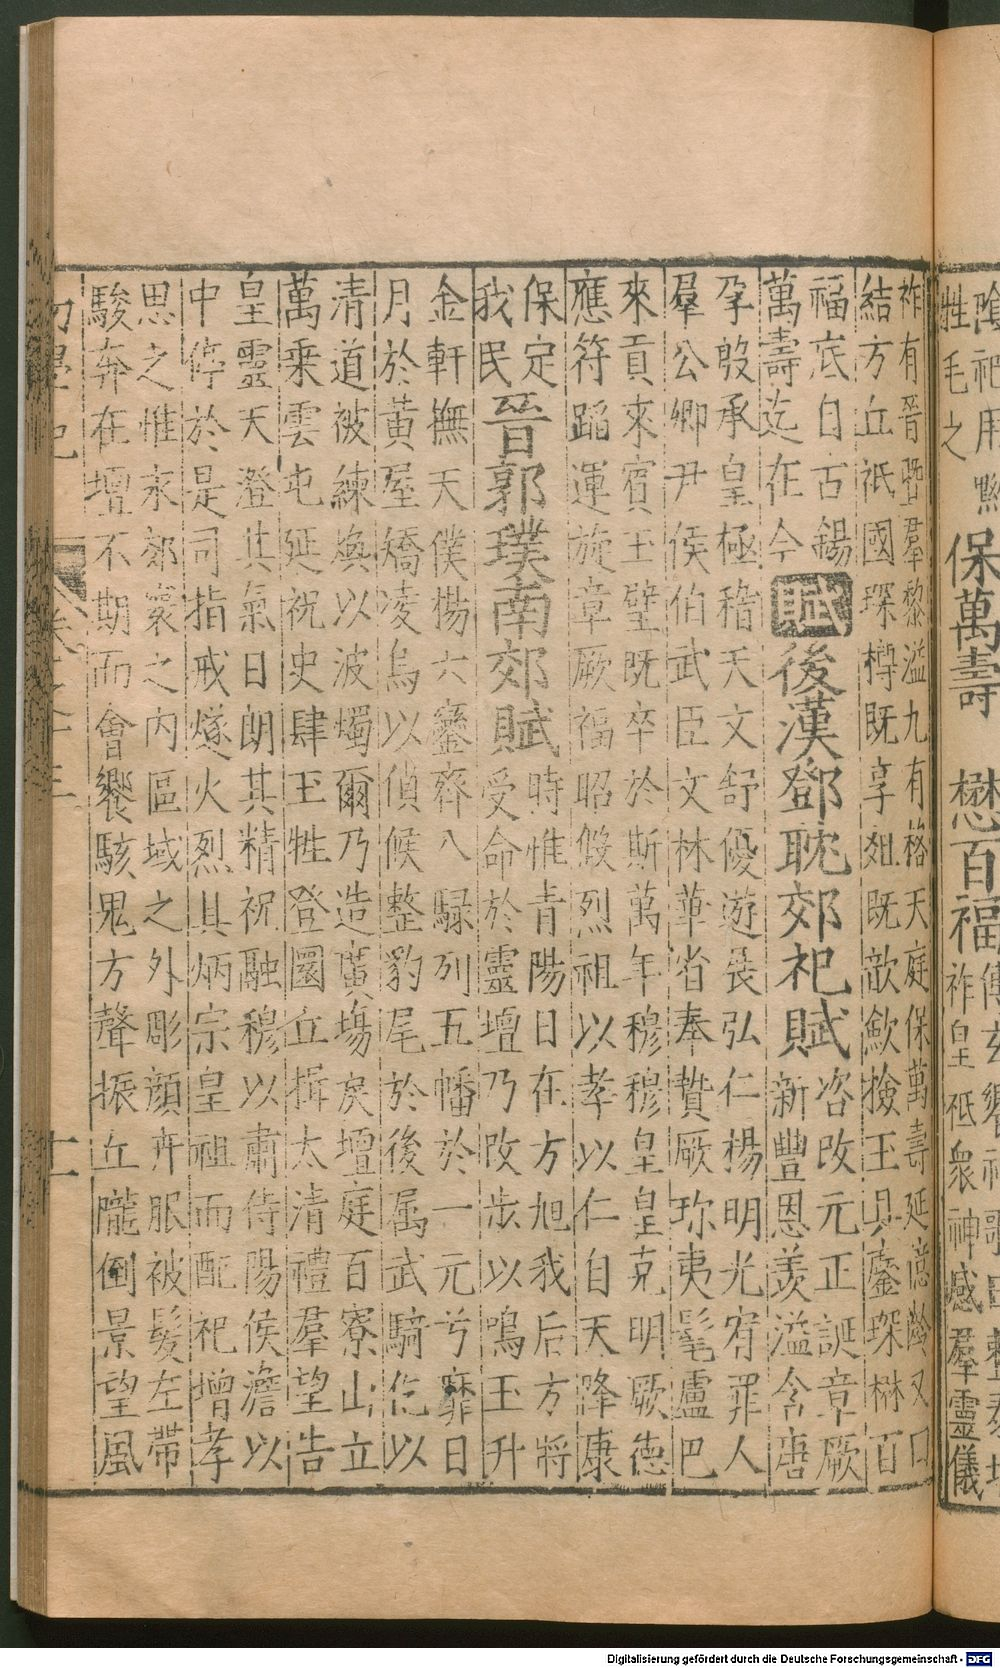 陰祀用黝
牲毛之
保萬壽 懋百福
祚皇祇衆神感羣靈儀
祚有晉暨羣黎溢九有格天庭保萬壽延億齡又曰
結方丘祇國琛樽既享俎既歆歛撿玉具鏖琛楙百
福底自古錫
萬壽迄在今
賦 後漢鄧耽郊祀賦
咨改元正誕章厥
新豐恩羡溢含唐
孕殷承皇極稽天文舒優遊展弘仁楊明光宥罪人
羣公卿尹侯伯武臣文林華省奉贄厥珎夷髦盧巴
來貢來賓玉璧既卒於斯萬年穆穆皇皇克明厥德
應符蹈運旋章厥福昭假烈祖以孝以仁自天降康
保定
我民
晉郭璞南郊賦
時惟青陽日在方旭我后方將
受命於靈壇乃改步以鳴玉升
金軒撫天僕楊六鑾齊八騄列五幡於一元兮靡日
月於黃屋矯凌烏以偵候整豹尾於後属武騎仡以
清道被練煥以波燭爾乃造廣塲戾壇庭百寮山立
萬乗雲屯延祝史肆玉牲登圜丘揖太清禮羣望告
皇靈天澄其氣日朗其精祝融穆以肅侍陽侯澹以
中停於是司指戒燧火烈具炳宗皇祖而配祀增孝
思之惟永郊寰之内區域之外彫顔卉服被髮左帶
駿奔在壇不期而會饗駭鬼方聲振丘隴倒景望風
卷之十三
十一
Digitalisierung gefördert durch die Deutsche Forschungsgemeinschaft - DFG